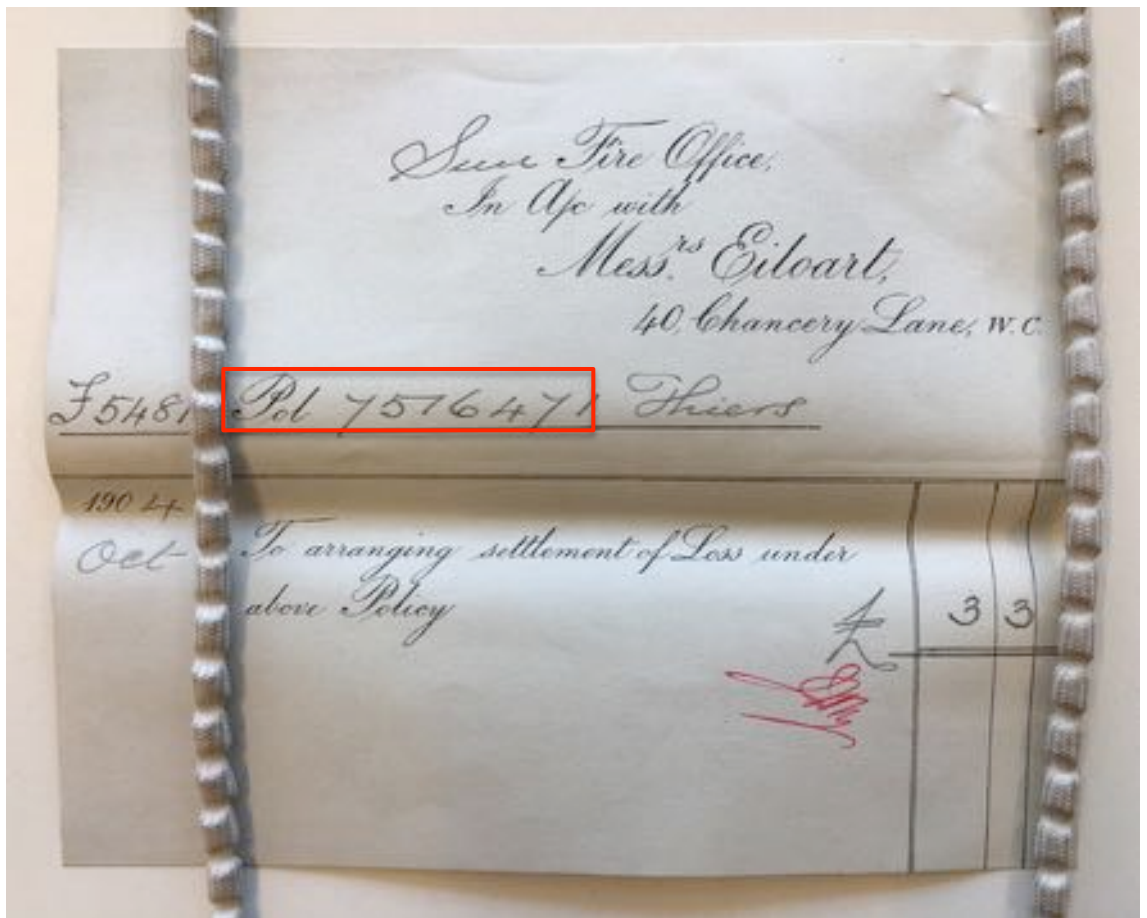 Sun Fire Office,
In A/c with
Messrs. Eiloart,
40, Chancery Lane, W.C.
F5481 Pol 7576471 Thiers
1904
Oct To arranging settlement of Loss under
above Policy
£ 3 3